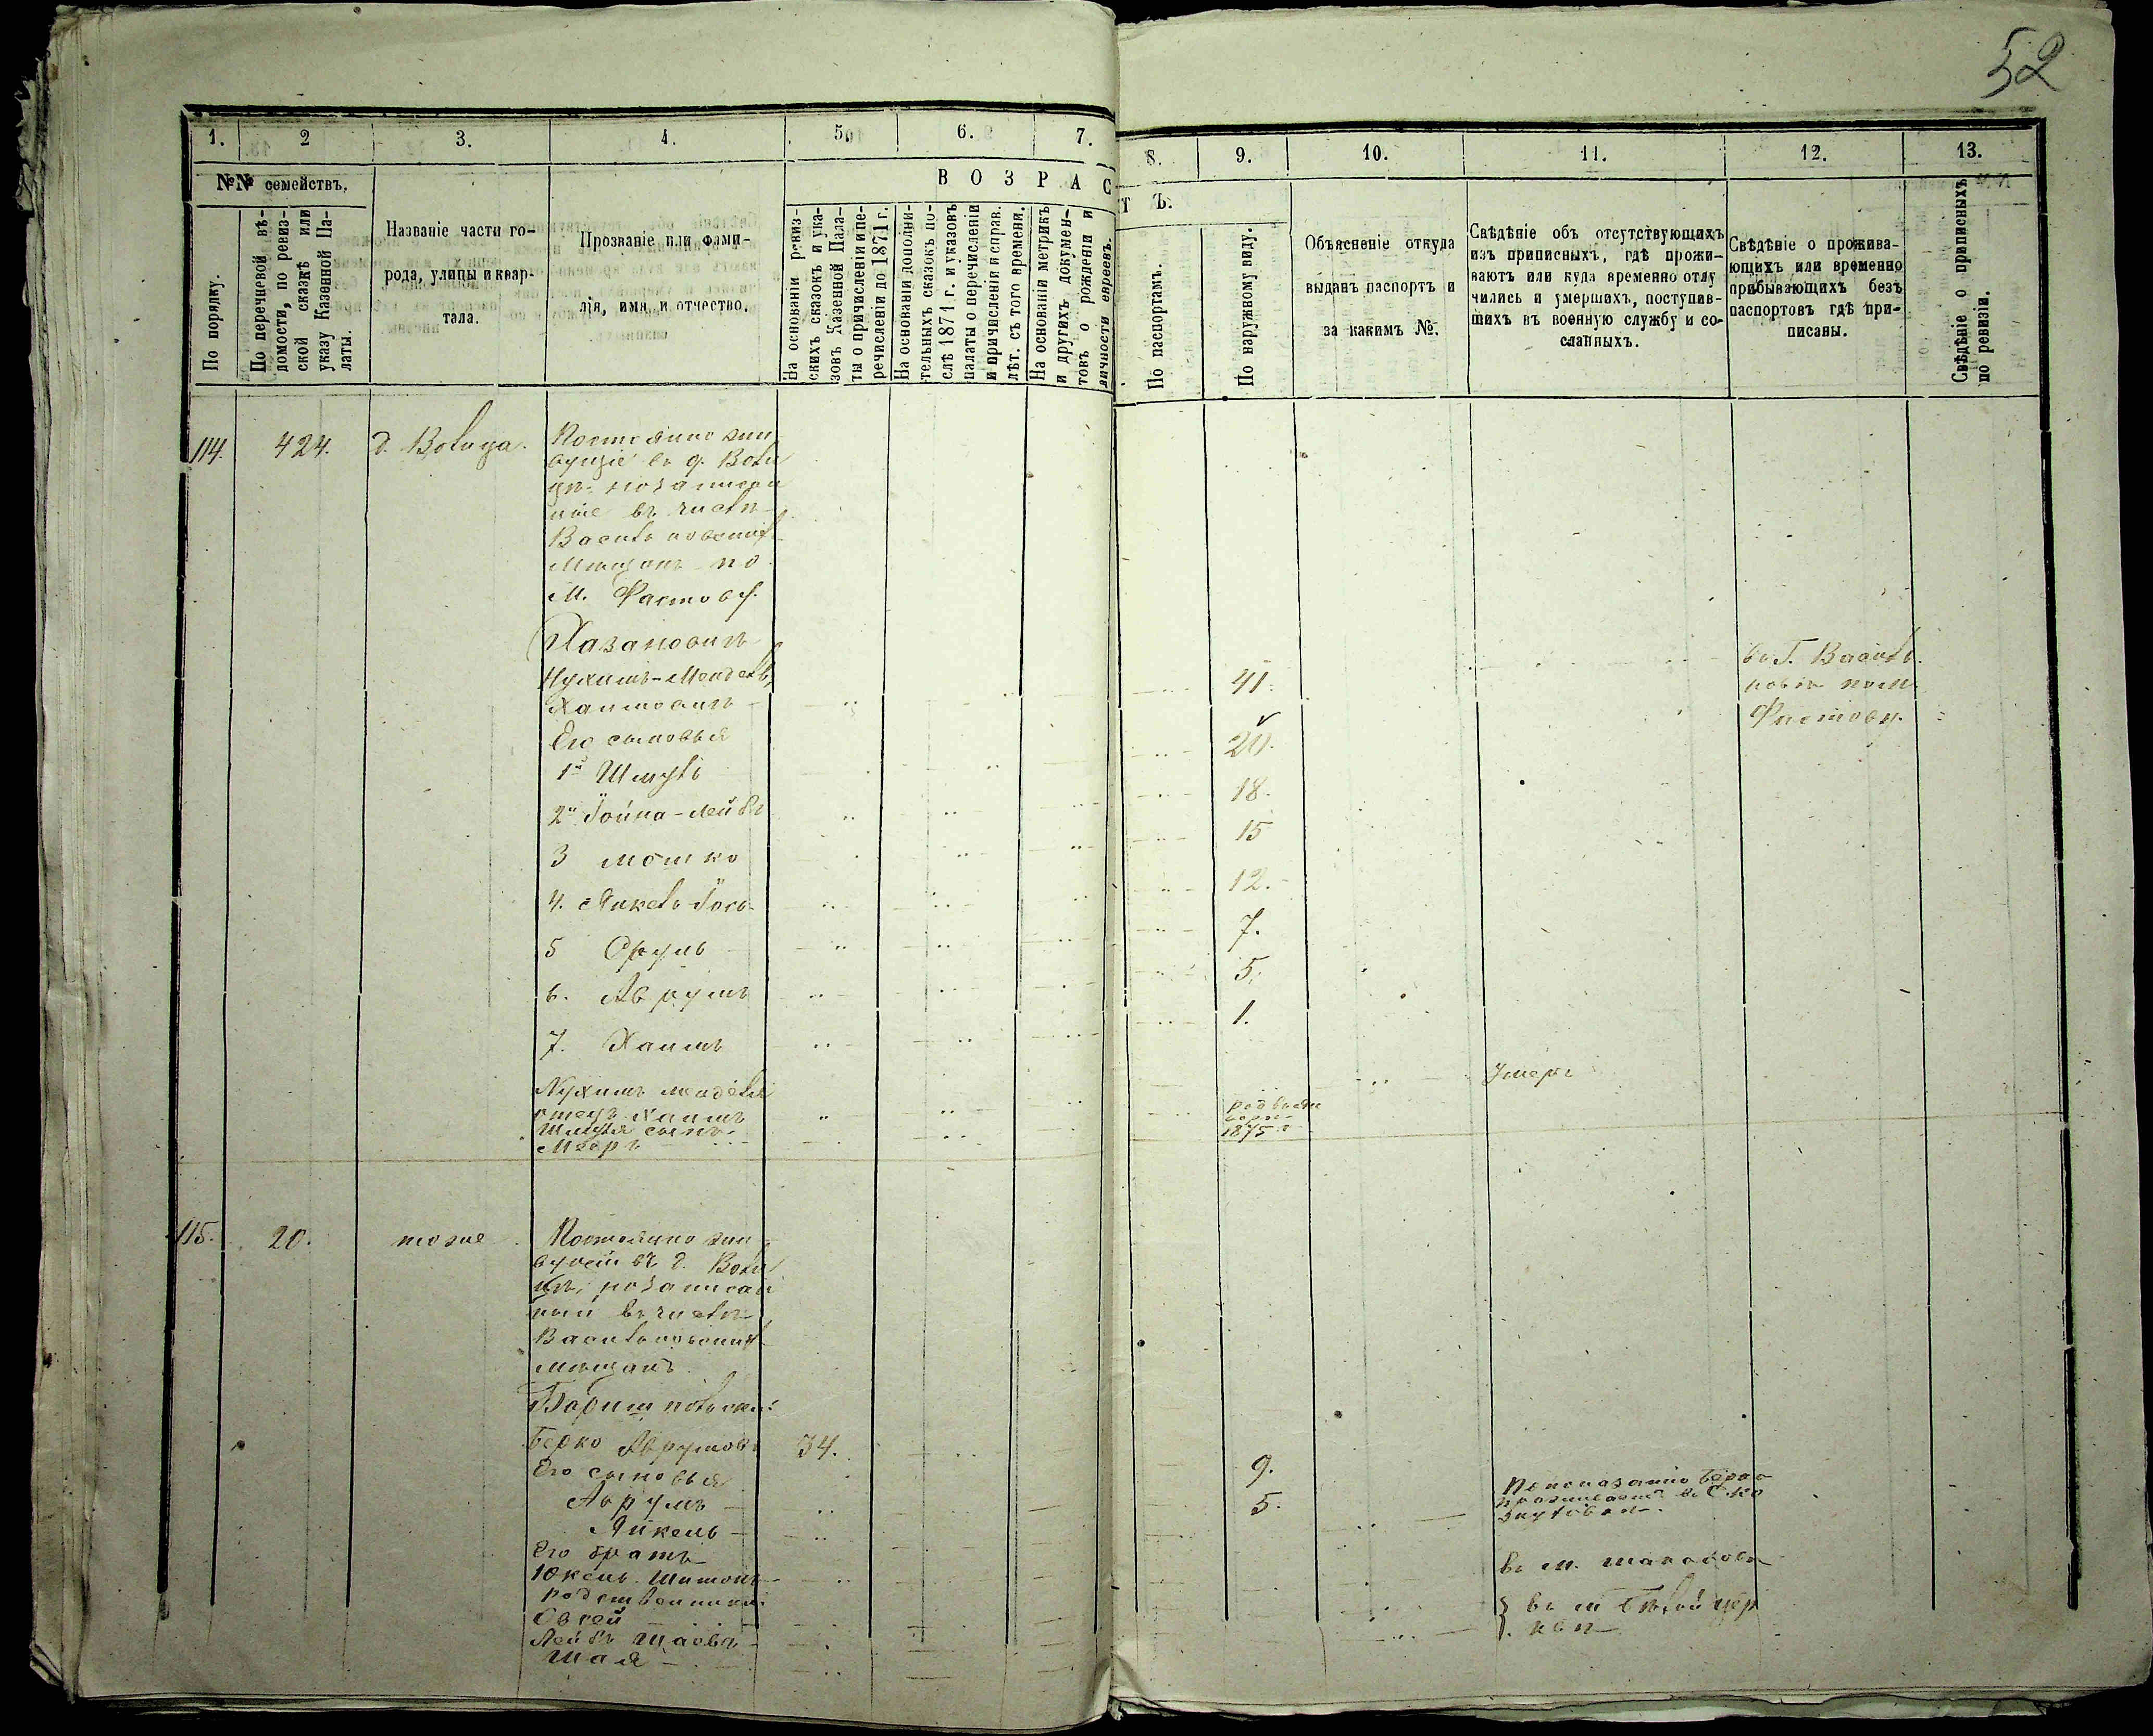 52
1. 2 3. 4. 5. 6. 7. 8. 9. 10. 11. 12. 13.
№№ семействъ.
По порядку.
По перечневой вѣ-
домости, по ревиз-
ской сказкѣ или
указу Казенной Па-
латы.
Названіе части го-
рода, улицы и квар-
тала.
Прозваніе или фами-
лія, имя и отчество.
ВОЗРАСТЪ.
На основаніи ревиз-
скихъ сказокъ и ука-
зовъ Казенной Пала-
ты о причисленіи и пе-
речислени до 1871 г.
На основаніи дополни-
тельныхъ сказокъ по-
слѣ 1871 г. и указовъ
палаты о перечисленіи
и причисленіи и справ.
лѣт. съ того времени.
На основаніи метрикъ
и другихъ докумен-
товъ о рожденіи и
личности евреевъ.
По паспортамъ.
По наружному виду.
Объясненіе откуда
выданъ паспортъ и
за какимъ №.
Свѣдѣніе объ отсутствующихъ
изъ приписныхъ, гдѣ прожи-
ваютъ или куда временно отлу
чились и умершихъ, поступив-
шихъ въ военную службу и со-
сланныхъ.
Свѣдѣніе о прожива-
ющихъ или временно
прибывающихъ безъ
паспортовъ гдѣ при-
писаны.
Свѣдѣніе о приписныхъ
по ревизіи.
114. 424. д. Волица.
Постоянно жи-
вущіе въ д. Воли
цѣ, но записан
ные въ числѣ
Васильковскихъ
Мѣщанъ по
М. Фастову.
Хазановичъ
Нухимъ-Мендель
Хаимовичъ 41.
въ Г. Василь
ковѣ по м.
Фастову.
Его сыновья
1й Шмуль 20.
2й Іойна-Лейбъ 18.
3 Мошко 15
4. Янкель-Іось 12.
5 Сруль 7.
6. Аврумъ 5.
7. Хаимъ 1.
Нухимъ Менделя
отецъ Хаимъ Умеръ
Шмуля сынъ
Мееръ
1875 г
115. 20. тоже
Постоянно жи-
вущій въ д. Воли
цѣ, но записан
ный въ числѣ
Васильковскихъ
мѣщанъ.
Баришпольскій
Берко Аврумовъ 34.
Его сыновья
Аврумъ 9.
Янкель 5.
Его братъ
Юкель Шимонъ
родственники
Овсей
Лейбъ Шаевъ
Шая
По показанію Берка
проживаетъ въ С.
въ м.
въ м Бѣлой Цер
квѣ